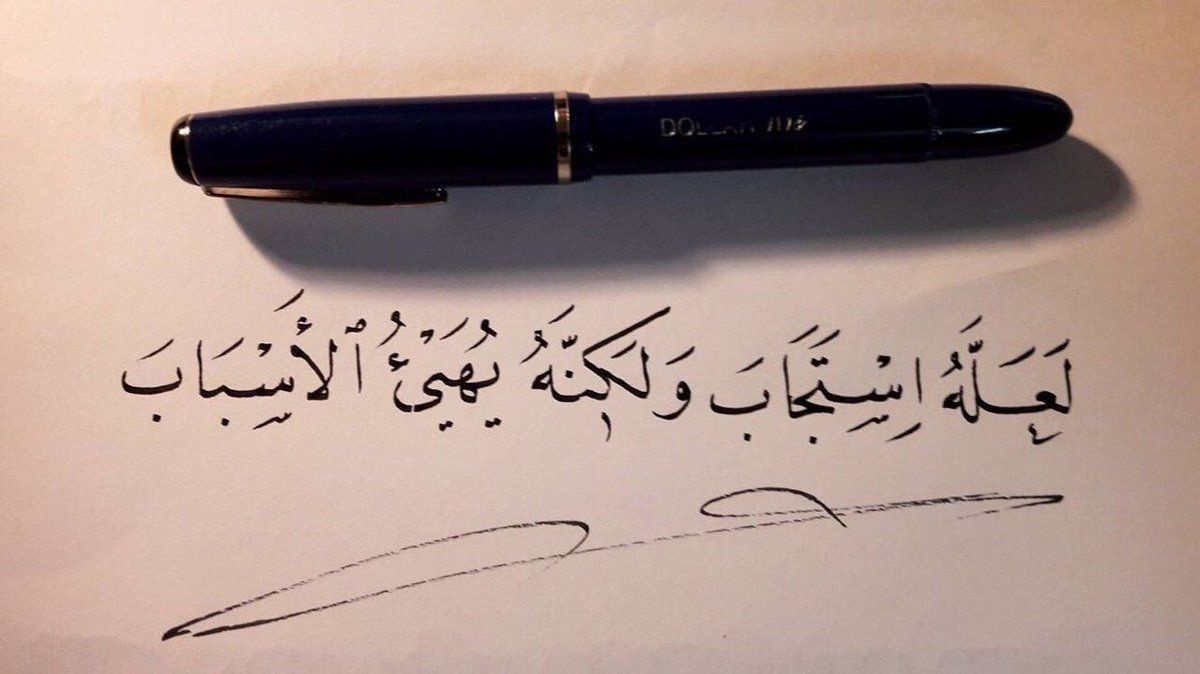 DOLLAR 717i
لَعَلَّهُ اِسْتَجَابَ وَلَكِنَّهُ يُهَيِّئُ ٱلأَسْبَابَ